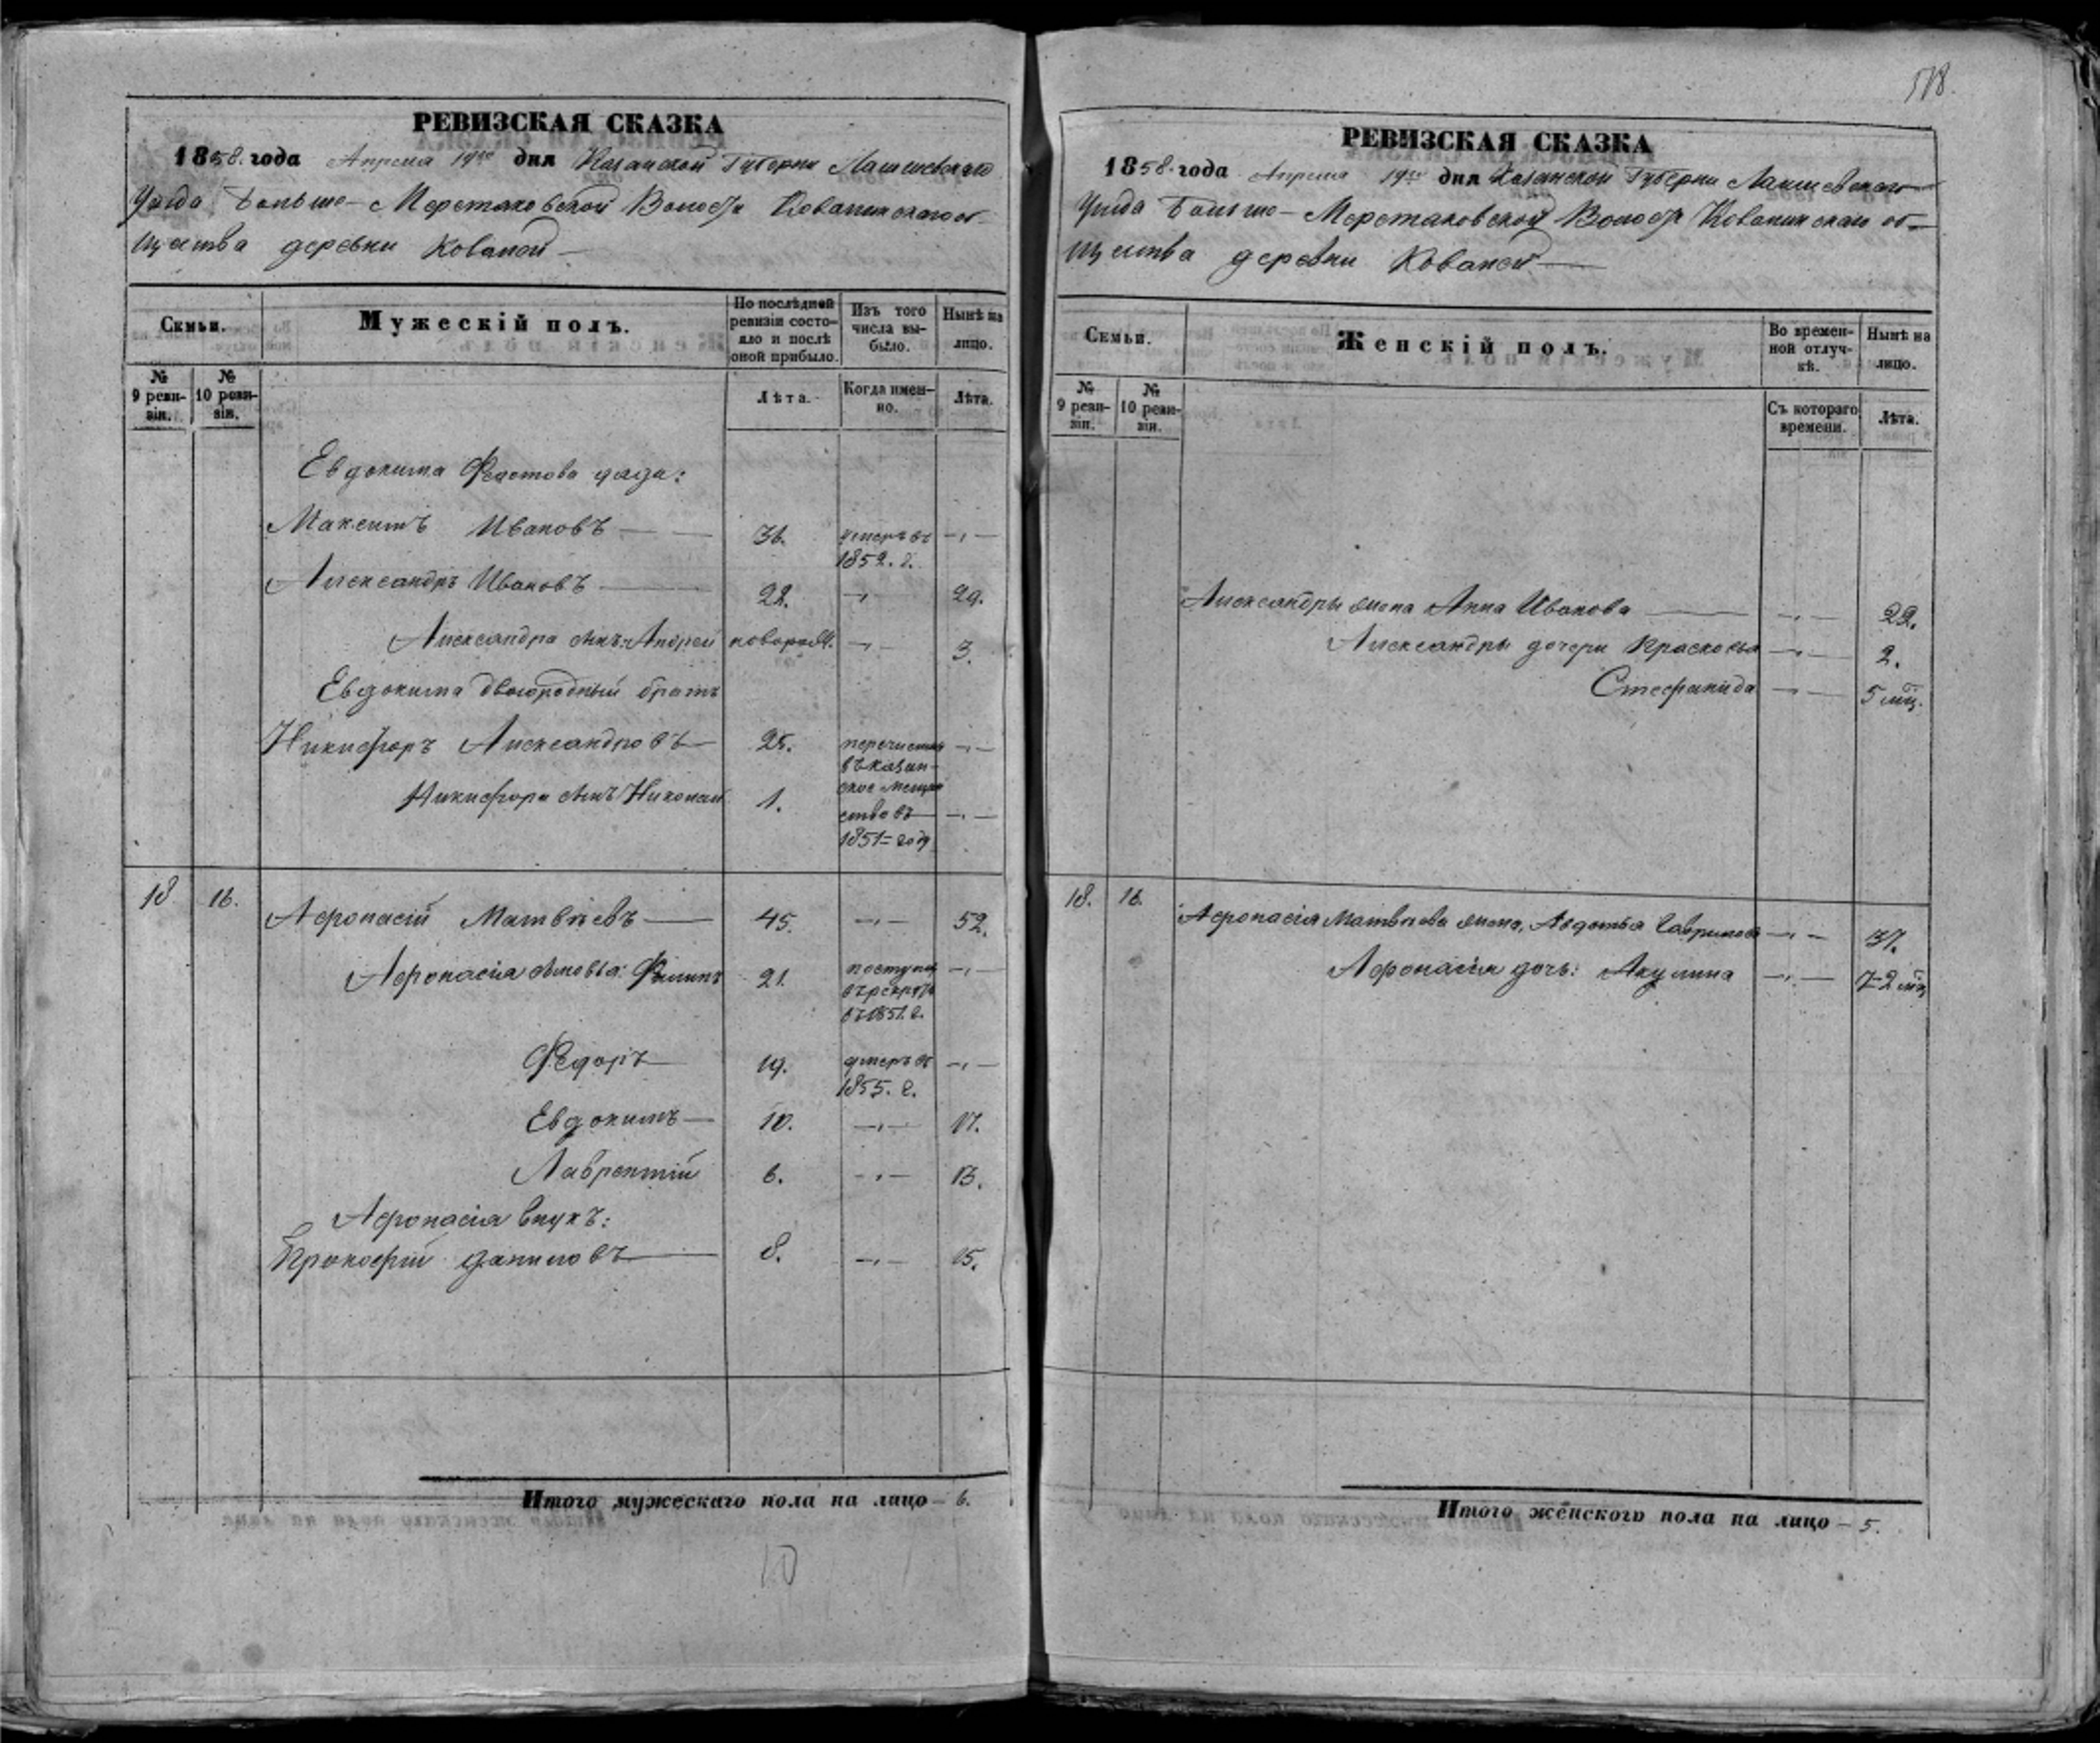 РЕВИЗСКАЯ СКАЗКА
1858. года Апреля 19го дня Казанской Губерніи Лаишевскаго
Уѣзда Больше-Меретяковской Волости Кованинскаго об-
щества деревни Кованой
Семьи.
Мужескій полъ.
По послѣдней ревизіи состо-
яло и послѣ оной прибыло.
Изъ того числа вы-
было.
Нынѣ на лицо.
№ 9 реви-
зіи.
№ 10 реви-
зіи.
Лѣта.
Когда имен-
но.
Лѣта.
Евдокима Феастова дяди:
Максимъ Ивановъ 36. умеръ въ
1852. г.
Александръ Ивановъ 22. 29.
Александра сынъ: Андрей новорожд. 3.
Евдокима двоюродный братъ
Никифоръ Александровъ 25. перечисленъ
въ казан-
ское мещан
Никифора сынъ Николай 1. ство въ
1851 = году
18 16. Афонасій Матвѣевъ 45. 52.
Афонасія сыновья: Филипъ 21. поступ.
въ рекруты
въ 1851. г.
Федоръ 19. умеръ въ
1855. г.
Евдокимъ 10. 17.
Лаврентій 6. 13.
Афонасія внукъ:
Прокофій Даниловъ 8. 15.
Итого мужескаго пола на лицо - 6.
10
518.
РЕВИЗСКАЯ СКАЗКА
1858. года Апреля 19го дня Казанской Губерніи Лаишевскаго
Уѣзда Больше-Меретяковской Волости Кованинскаго об-
щества деревни Кованой
Семьи.
Женскій полъ.
Во времен-
ной отлуч-
кѣ.
Нынѣ на лицо.
№ 9 реви-
зіи.
№ 10 реви-
зіи.
Съ котораго времени.
Лѣта.
Александры жена Анна Иванова 29.
Александры дочери Прасковья 2.
Стефанида 5 мц.
18. 16. Афонасія Матвѣева жена, Авдотья Гаврилова 37.
Афонасія дочь: Акулина 7-2 мц
Итого женскаго пола на лицо - 5.